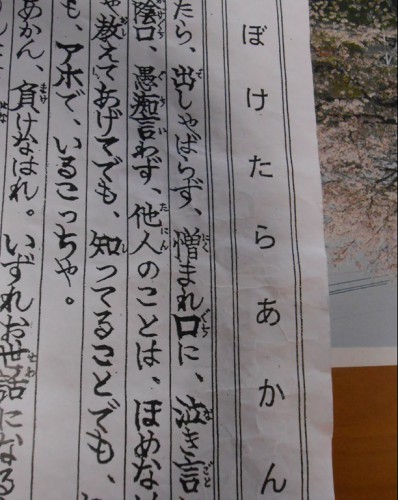 ぼけたらあかん
たら、出しゃばらず、憎まれ口に、泣き言
陰口、愚痴言わず、他人のことは、ほめな
教えてあげてでも、知ってることでも、
も、アホで、いるこっちゃ。
あかん、負けなはれ。いずれお世話になる